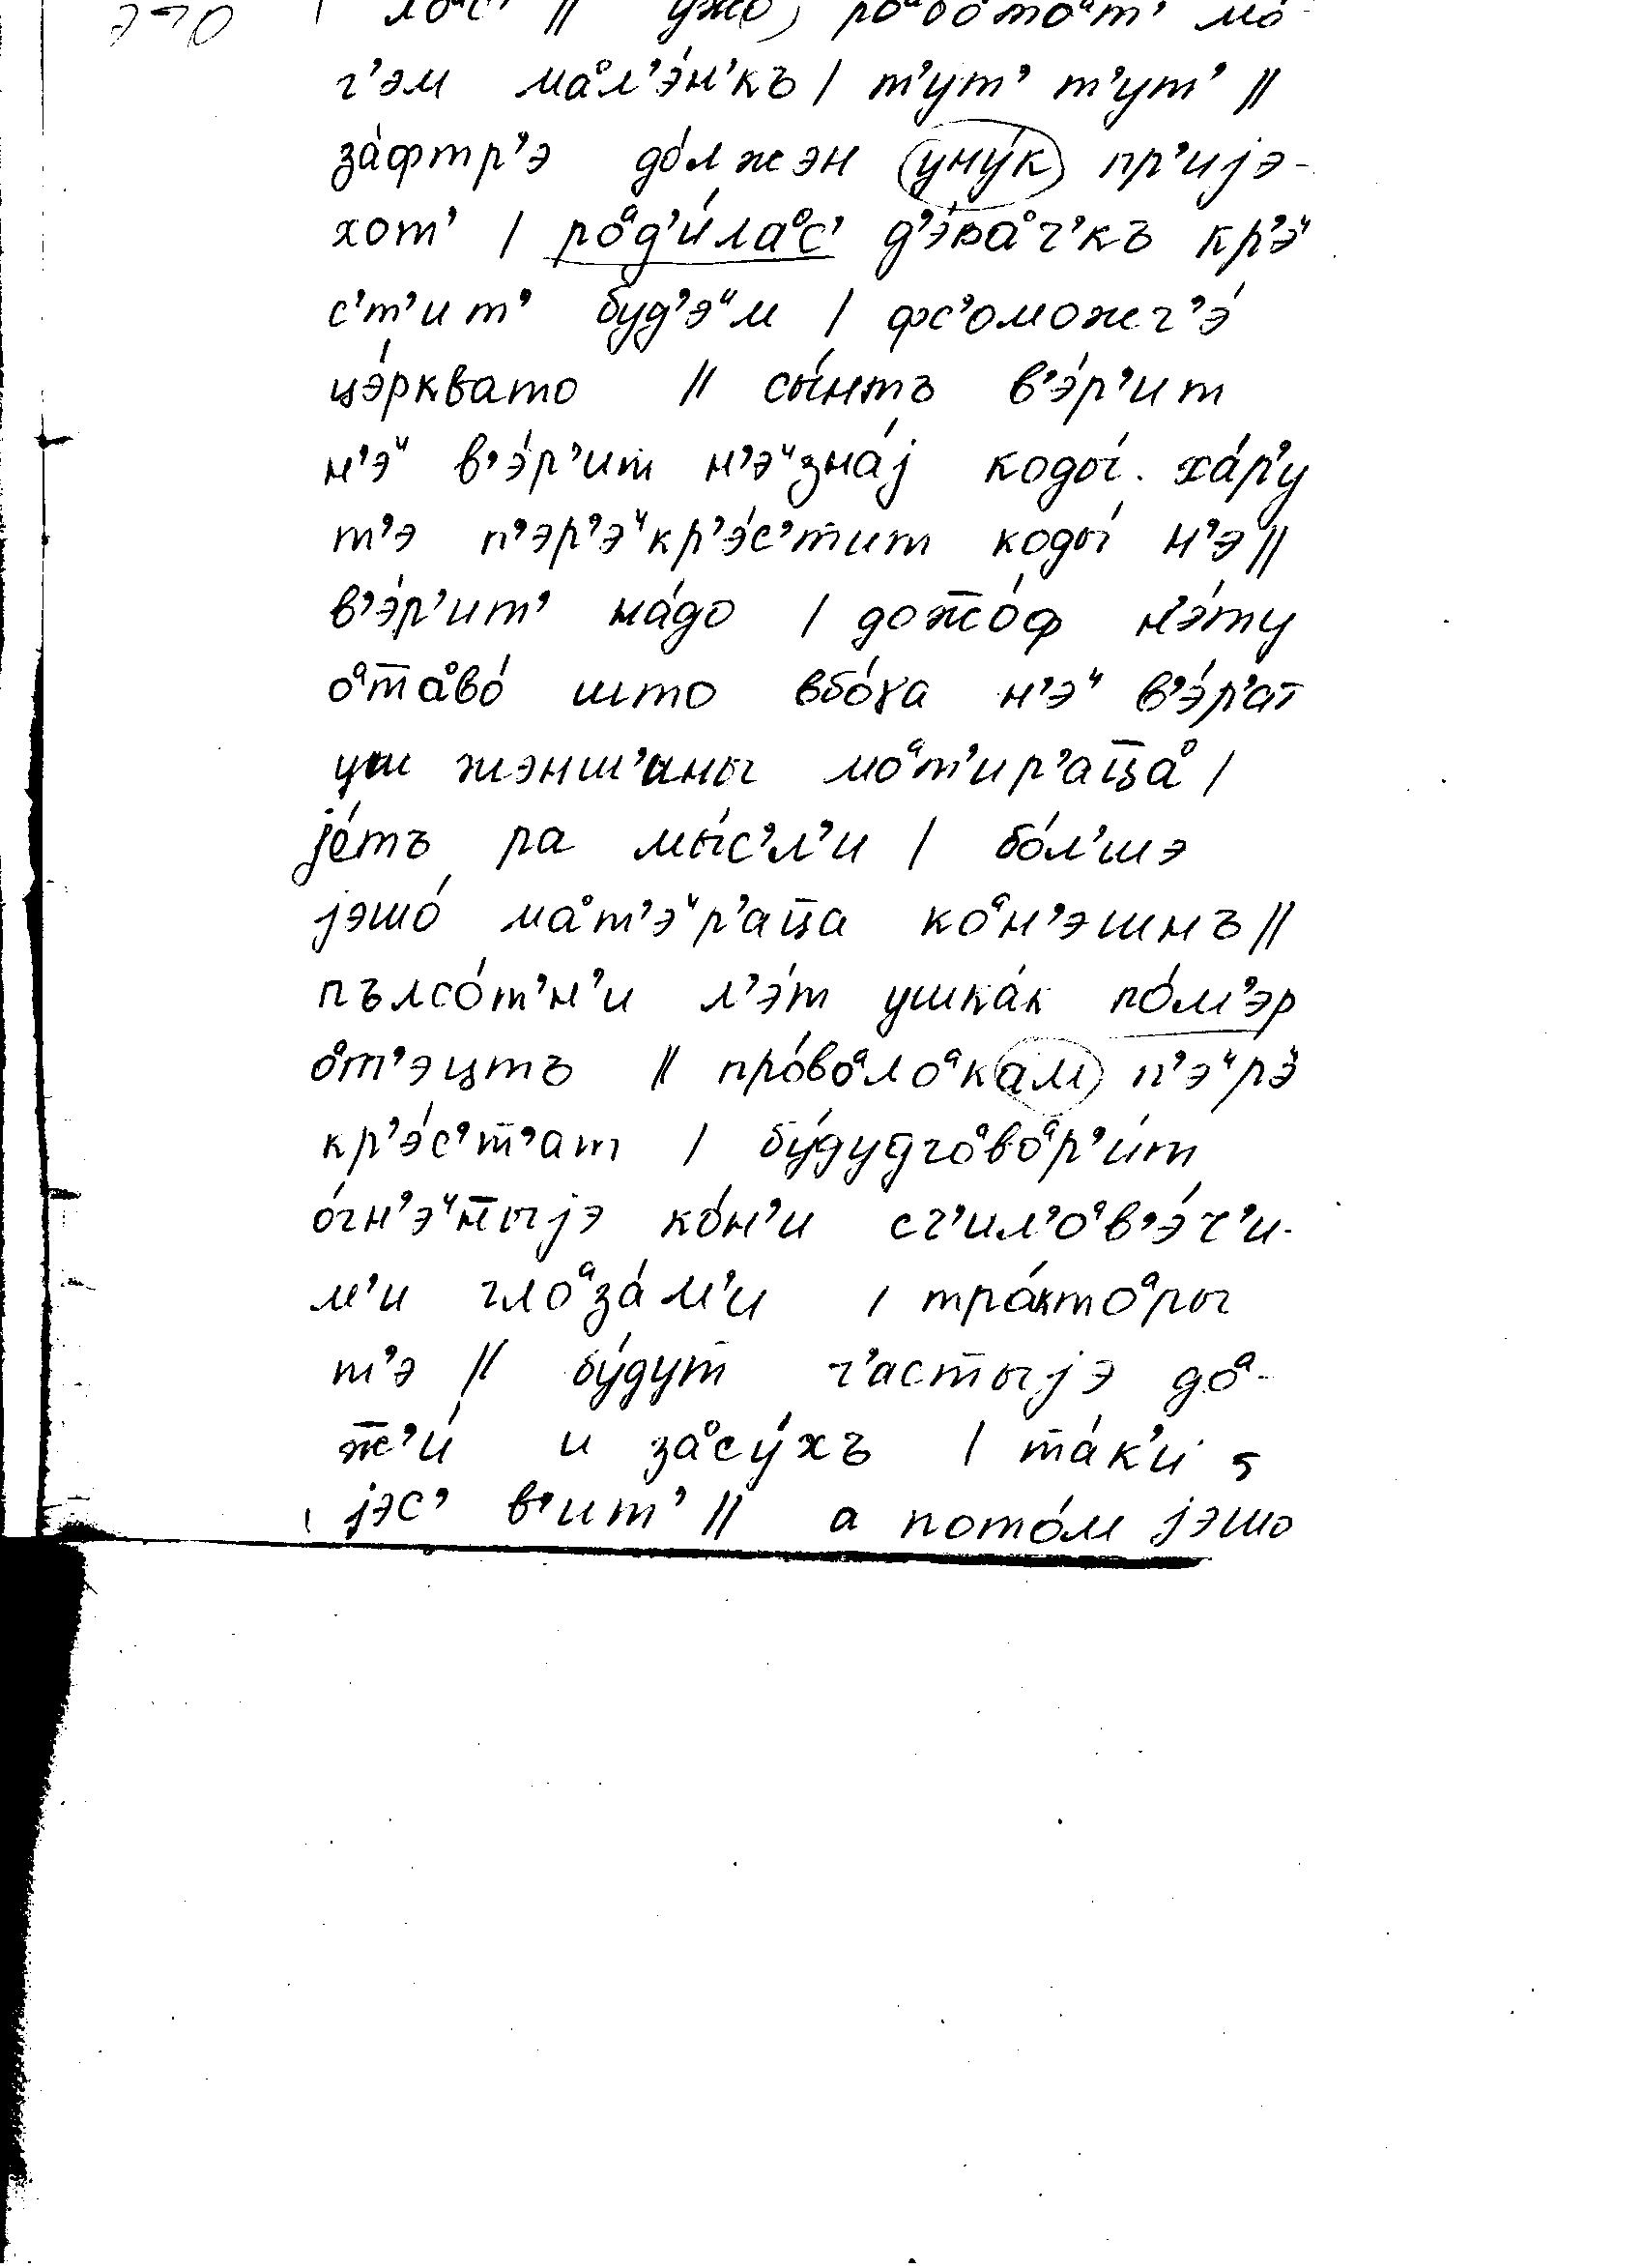 г'эм ма°л'э́н'къ / т'ут' т'ут' //
за́фтр'э до́лжэн уну́к пр'иjэ-
хот' / роᵃд'и́ла°с' д'э́ва°ч'къ кр'эᶦ
с'т'ит' бу́д'эᶦм / фс'оможг'э́
цэ́рквато // сы́нтъ в'э́р'ит
н'эᶦ в'э́р'ит н'эᶦзна́j коды́. ха́р'у
т'э п'эр'эᶦкр'э́с'т̅ит коды́ н'э //
в'э́р'ит' на́до / дож̅о́ф н'э́ту
оᵃт̅а°во́ што вбо́γа н'эᶦ в'э́р'ат
уш жэнш'ины моᵃт'ир'ац̅а° /
jе́тъ ра мы́с'л'и / бо́л'шэ
jэшо́ ма°т'эᶦр'ац̅а коᵃн'эшнъ //
пълсо́т'н'и л'э́т ушка́к по́м'эр
оᵃт'эцтъ // про́воᵃлоᵃкам п'эᶦр'э
кр'э́с'т̅'ат / бу́дудгоᵃвоᵃр'и́т
о́гн'эᶦн̅ыjэ ко́н'и сч'ил'оᵃв'э́ч'и-
м'и глоᵃза́м'и / тра́ктоᵃры
т'э // бу́дут̅ ч'астыjэ доᵃ-
ж̅'и́ и за°су́хъ / та́к'и
jэс' в'ит' // а пото́м jэшо